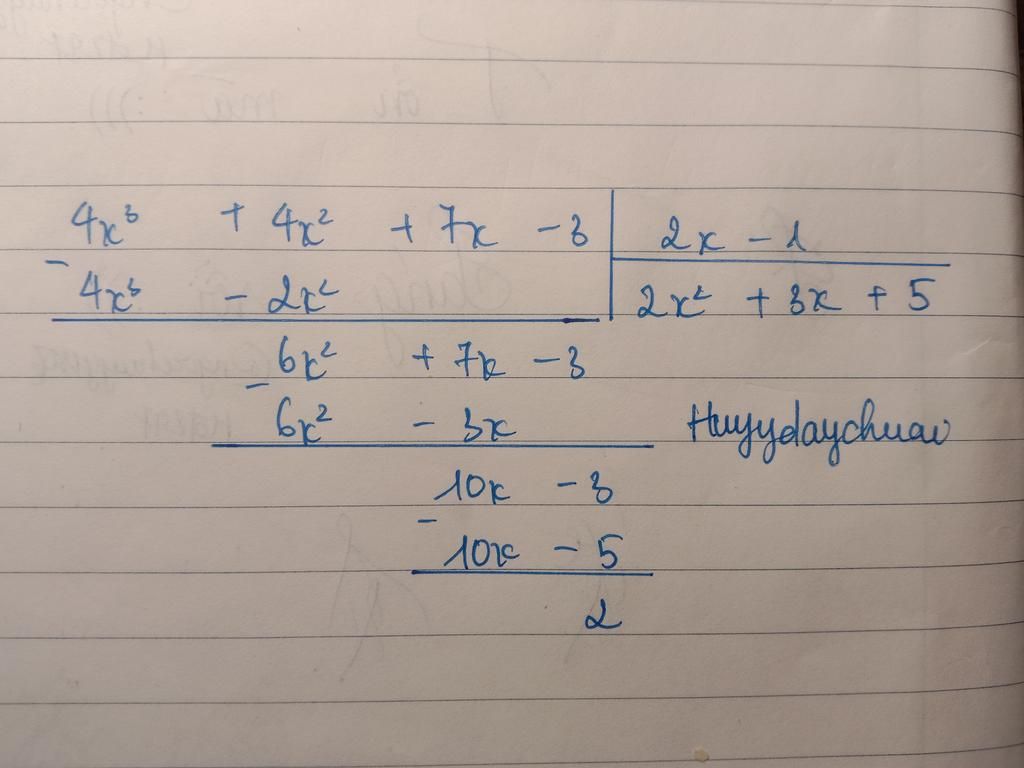 4x³ + 4x² + 7x - 3 | 2x - 1
- 4x³ - 2x² | 2x² + 3x + 5
6x² + 7x - 3
- 6x² - 3x
Huyydaychuav
10x - 3
- 10x - 5
2